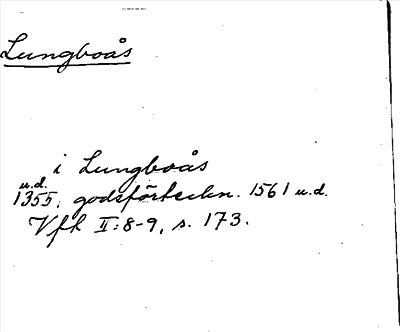 Lungboås
i Lungboås
u.d.
1355; godsförteckn. 1561 u.d.
Vfh II:8-9, s. 173.